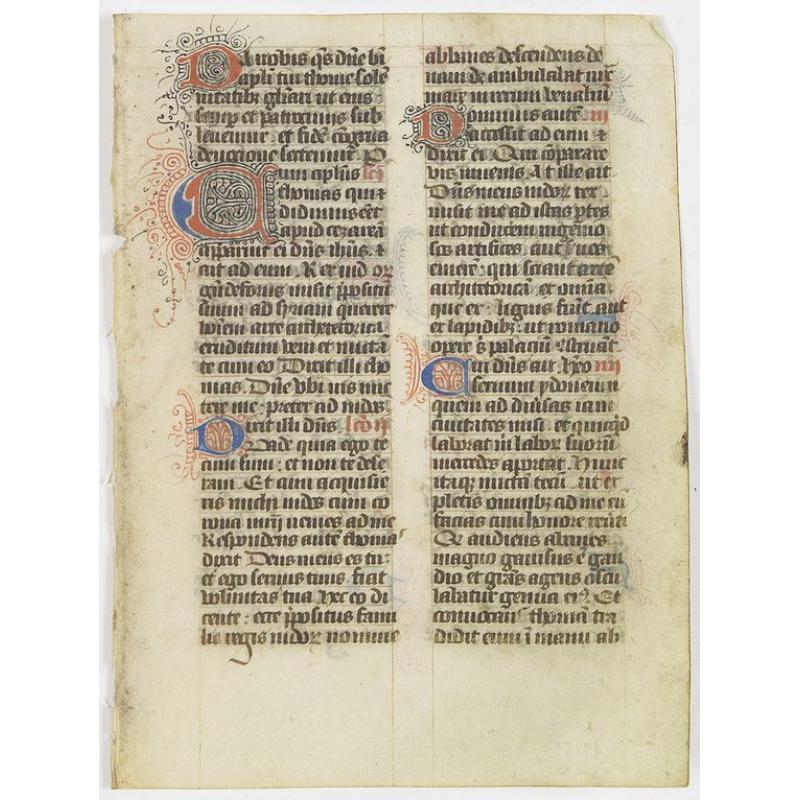 Da nobis qs dne bti
apli tui thome solē
nitatibꝫ glari ut eius
semp et patrociniis sub
leuemur et fidē cōgrua
deuocione sectemur P
Cum aplus lcō
thomas qui ⁊
didimus eēt
apud cezareā
apparuit ei dns ihus ⁊
ait ad eum Rex indorꝫ
gūdeforus misit ppositū
suum ad syriam querere
hoīem arte architetorica
eruditum veni et mittā
te cum eo Dixit illi tho
mas Dne vbi uis mit
tere me preter ad indos
Dixit illi dns lcō ii
Vade quia ego te
cum sum et non te dese
ram Et cum acquisie
ris michi indos cum co
rona mrii uenies ad me
Respondens autē thomas
dixit Deus meus es tu
et ego seruus tuus fiat
voluntas tua Hec eo di
cente ecce ppositus fami
lie regis indorꝫ nomine
abbanes descendens de
naui deambulabat iux
mare mercum venalium
Dominus autē iii
accessit ad eum ⁊
dixit ei Qui cōparare
vis iuuenis At ille ait
Dns meus indorꝫ rex
misit me ad istas ptes
ut conducem ingenio
sos artifices aut
emerē qui sciant arte
architetorica et omia
que ex lignis fiūt aut
et lapidibꝫ ut romano
opere palacium ostruāt
Cui dns ait Hēo iiii
seruum ydoneum
quem ad diuersas iam
ciuitates misi et quicqd
laborat in labore suorū
mercedes aportat Hunc
itaqꝫ mittā tecū ut ex
pletis omibꝫ ad me eū
facias cum honore reuti
Qd audiens abanes
magno gauisus ē gau
dio et gras agens oscu
labatur genua eiꝰ Et
conuocans thomā tra
didit eum i manu ab